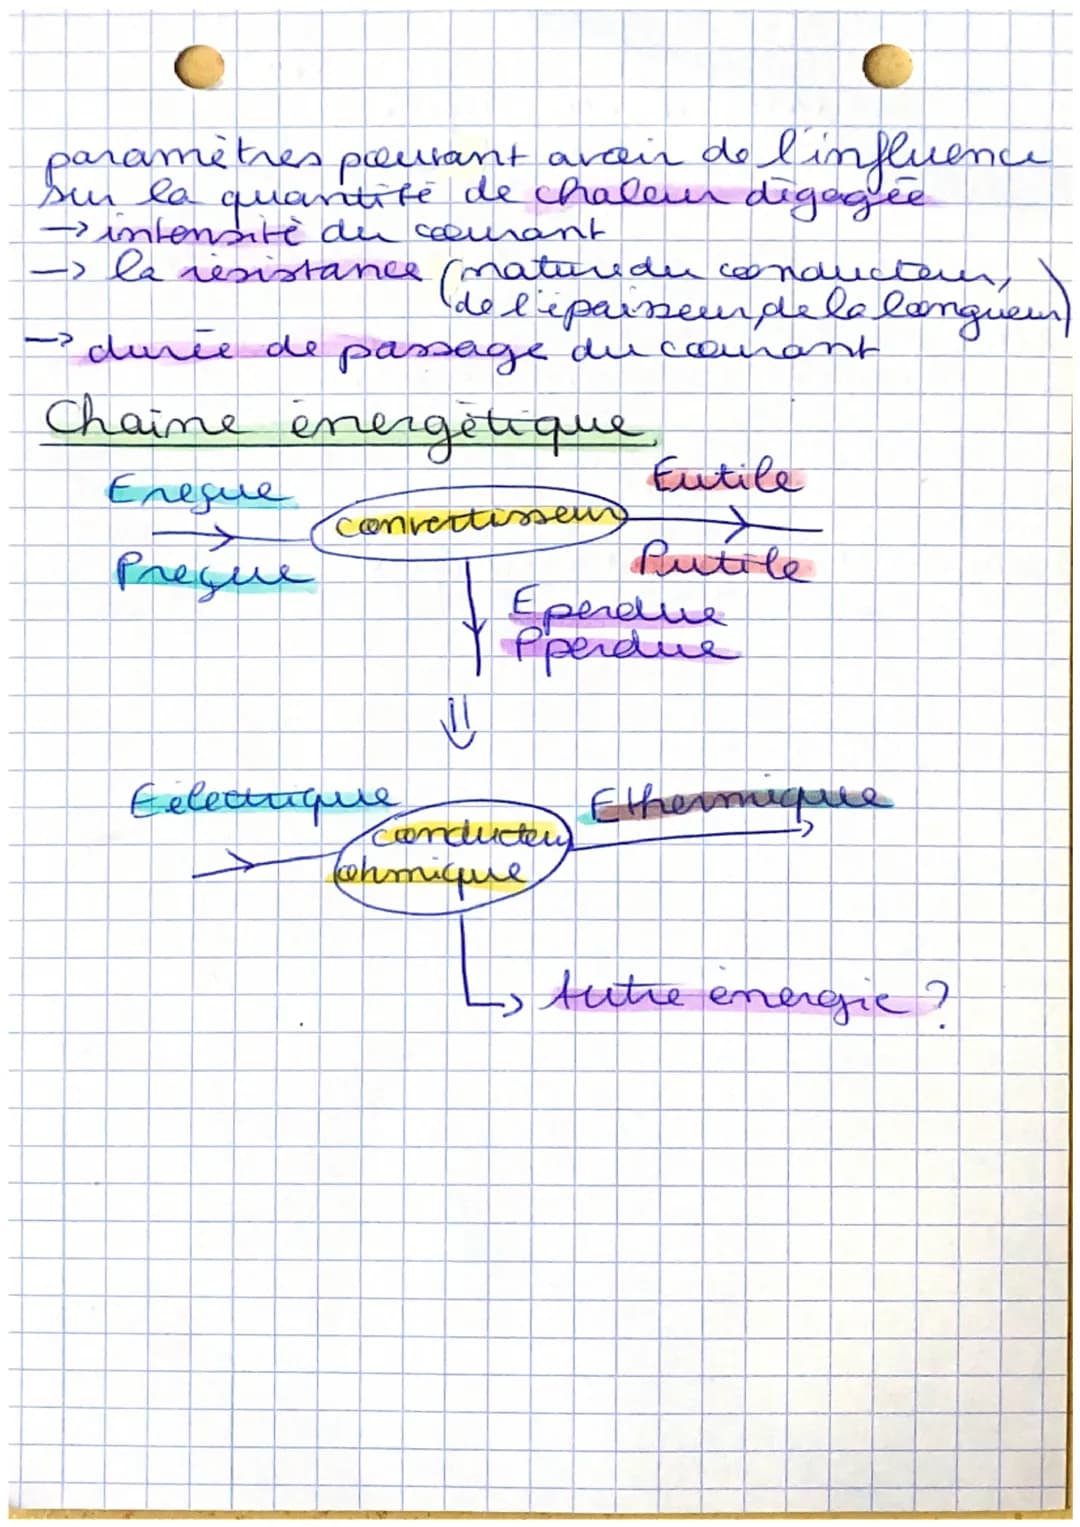 paramètres pouvant avoir de l'influence
sur la quantité de chaleur dégagée
-> intensité du courant
-> la résistance (nature du conducteur,
de l'épaisseur, de la longueur)
-> durée de passage du courant
Chaine énergétique
Ereçue
Eutile
convertisseur
Preçue
Putile
Eperdue
Pperdue
⇓
Eélectrique
Ethermique
conducteur
ohmique
Autre énergie ?